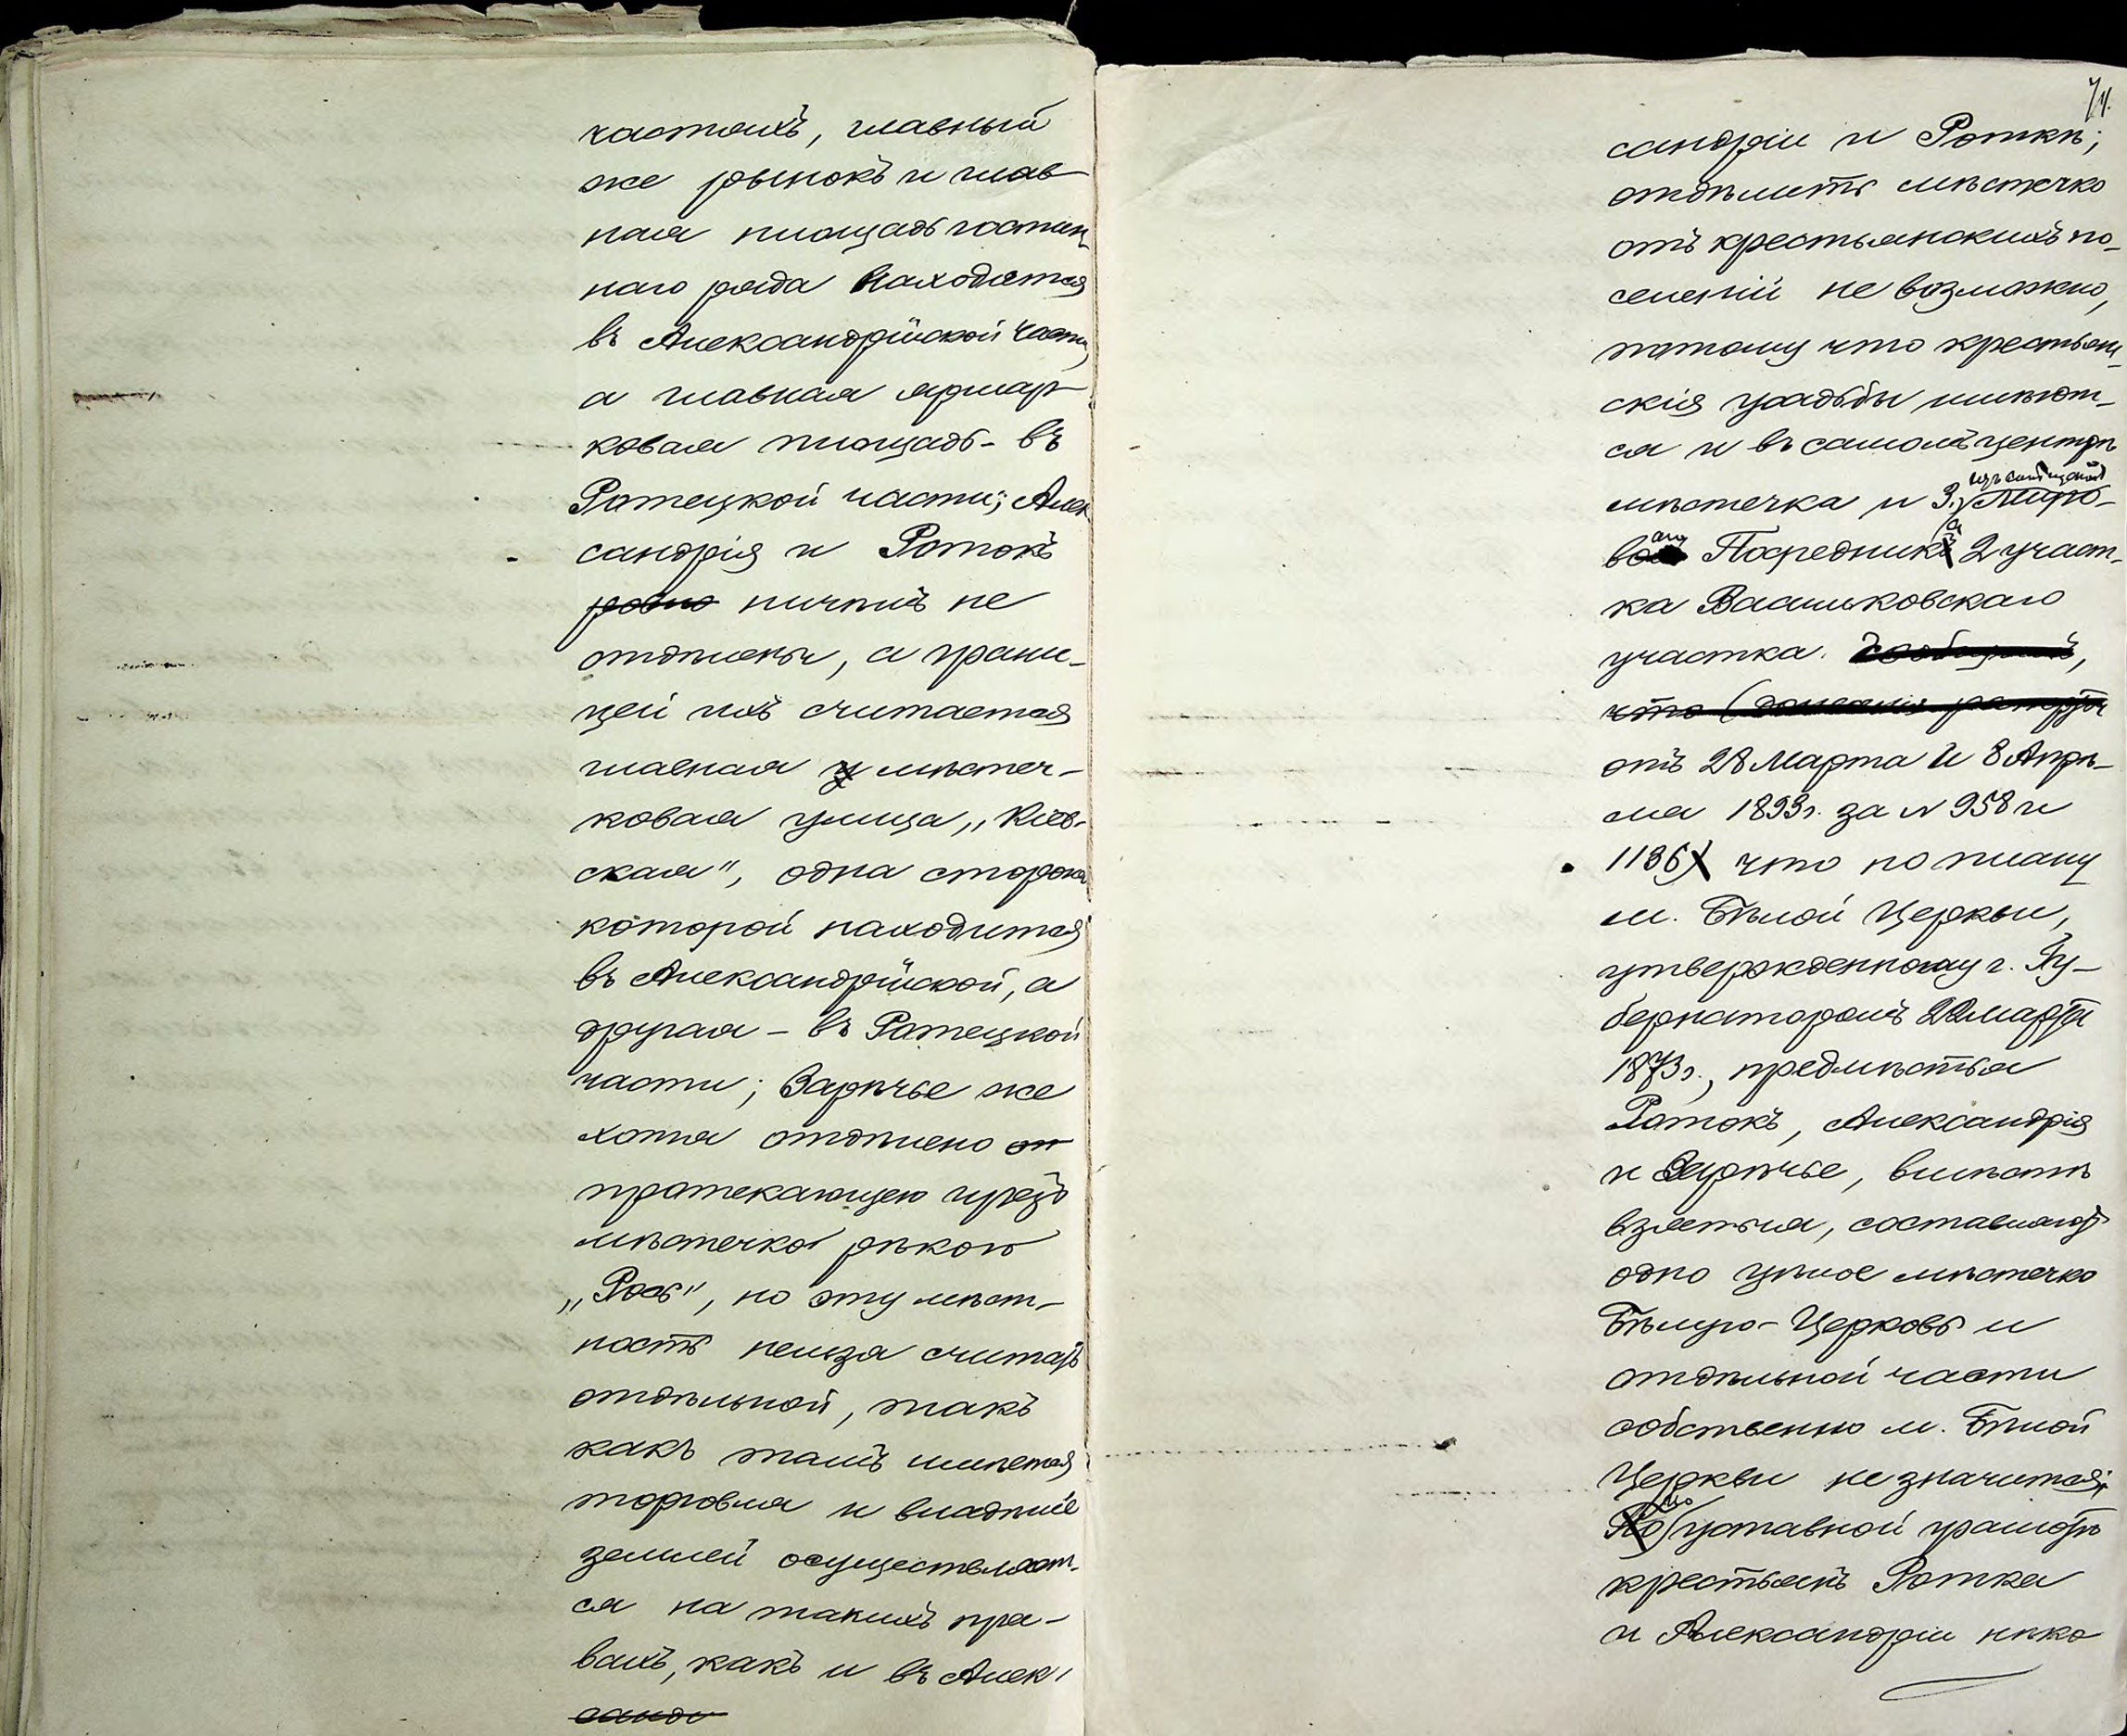 частяхъ, главный
же рынокъ и глав
ная площадь гостин
наго ряда находятся
въ Александрійской части,
а главная ярмар
ковая площадь - въ
Ротецкой части; Алек
сандрія и Ротокъ
ровно ничѣмъ не
отдѣлены, а грани-
цей ихъ считается
главная у мѣстеч-
ковая улица „Кіев-
ская", одна сторона
которой находится
въ Александрійской, а
другая - въ Ротецкой
части; Зарѣчье же
хотя отдѣлено от
протекающею чрезъ
мѣстечко рѣкою
„Рось", но эту мѣст-
ность нельзя считать
отдѣльной, такъ
какъ тамъ имѣется
торговля и владѣніе
землей осуществляет-
ся на такихъ пра-
вахъ, какъ и въ Алек
санд
71.
сандріи и Роткѣ;
отдѣлить мѣстечко
отъ крестьянскихъ по-
селеній не возможно,
потому что крестьян-
скія усадьбы имѣют-
ся и въ самомъ центрѣ
мѣстечка и 3.) Миро-
ваго Посредника 2 участ-
ка Васильковскаго
участка.
что (донесенія рапорты
отъ 28 Марта и 8 Апрѣ-
ля 1893г. за N 958 и
1186) что по плану
м. Бѣлой Церкви,
утвержденному г. Гу-
бернаторомъ 22 марта
1873г., предмѣстья
Ротокъ, Александрія
и Зарѣчье, вмѣстѣ
взятыя, составляютъ
одно цѣлое мѣстечко
Бѣлую-Церковь и
отдѣльной части
собственно м. Бѣлой
Церкви не значится;
По по уставной грамотѣ
крестьянъ Ротка
и Александріи нѣко